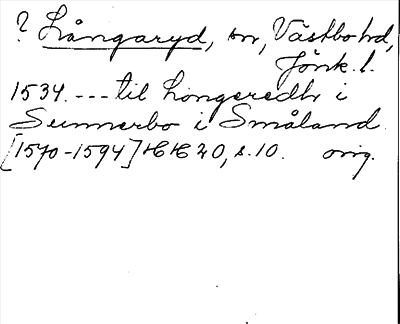 ? Långaryd, sn, Västbo hd,
Jönk. l.
1534. --- til Longeredh i
Sunnerbo i Småland
[1570-1594] HH 20, s. 10. orig.